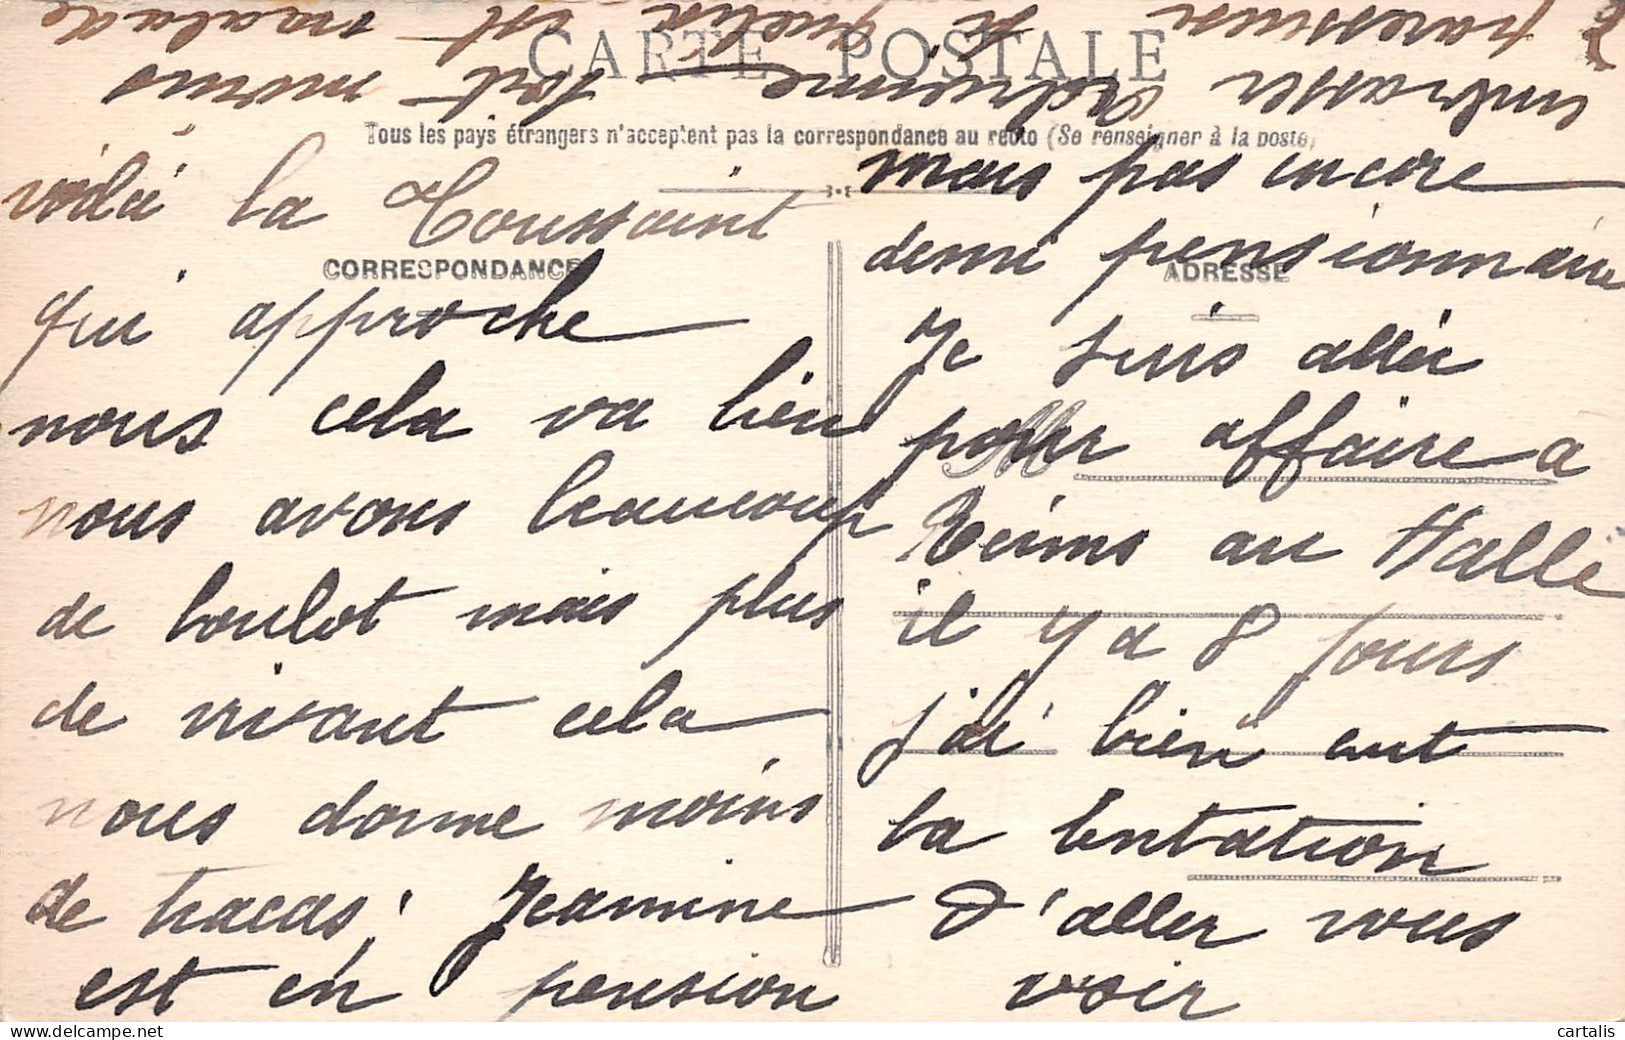 CARTE POSTALE
Tous les pays étrangers n'acceptent pas la correspondance au recto (Se renseigner à la poste)
CORRESPONDANCE
voilà la Toussaint
qui approche
nous cela va bien
nous avons beaucoup
de boulot mais plus
de vivant cela
nous donne moins
de tracas; Jeannine
est en pension
ADRESSE
mais pas encore
demi pensionnaire
Je suis allée
pour affaire a
Reims au Halle
il y a 8 jours
j'ai bien eut
la tentation
d'aller vous
voir
embrasser Adrienne fort moins
paresseuse si quelle est malade
cartalis